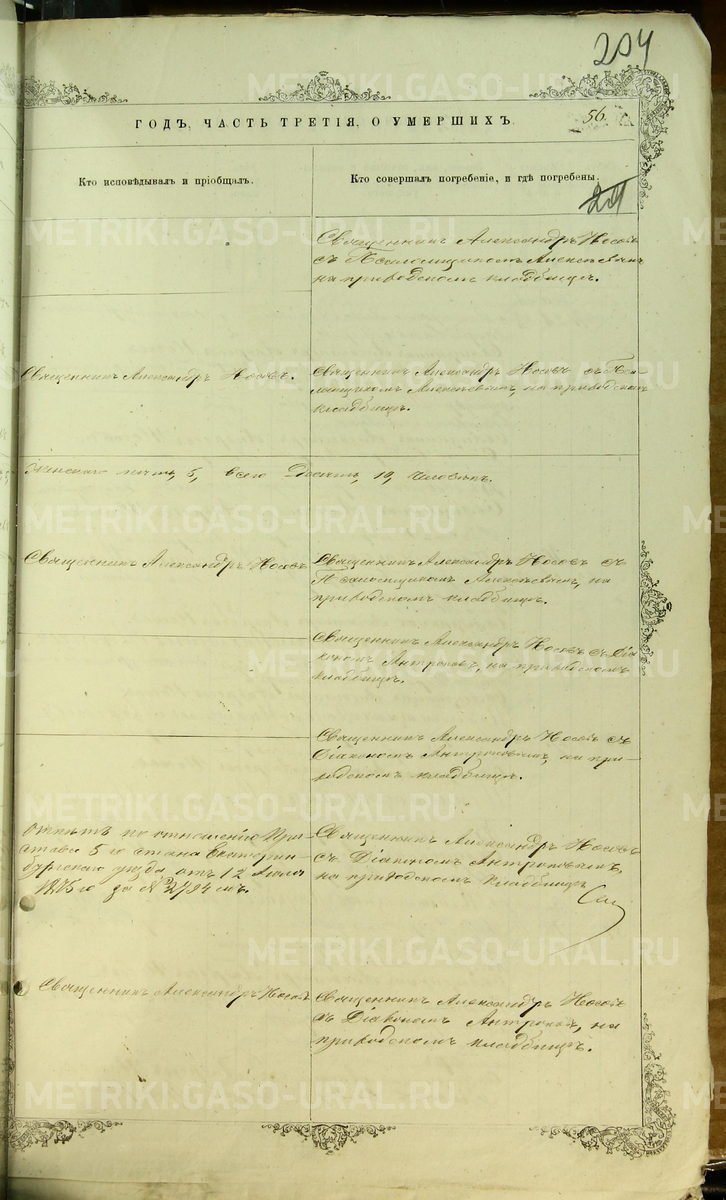 204
56.
ГОДЪ, ЧАСТЬ ТРЕТІЯ, О УМЕРШИХЪ.
Кто исповѣдывалъ и пріобщалъ.
Кто совершалъ погребеніе, и гдѣ погребены.
Священникъ Александръ Носовъ
съ Псаломщикомъ Алексѣевымъ
на приходскомъ кладбищѣ.
Священникъ Александръ Носовъ.
Священникъ Александръ Носовъ съ Пса-
ломщикомъ Алексѣевымъ, на приходскомъ
кладбищѣ.
Женскаго пола, 5, всего Десять, 10, человѣкъ.
Священникъ Александръ Носовъ
Священникъ Александръ Носовъ съ
Псаломщикомъ Алексѣевымъ, на
приходскомъ кладбищѣ.
Священникъ Александръ Носовъ съ Діа-
кономъ Антроповымъ, на приходскомъ
кладбищѣ.
Священникъ Александръ Носовъ съ
Діакономъ Антроповымъ, на при-
ходскомъ кладбищѣ.
Отпѣтъ по отношенію При-
става 5 го стана Екатерин-
бургскаго уѣзда отъ 12 Іюля
1875 го за № 2794 мъ.
Священникъ Александръ Носовъ
съ Діакономъ Антроповымъ,
на приходскомъ кладбищѣ
Священникъ Александръ Носовъ
Священникъ Александръ Носовъ
съ Діакономъ Антроповымъ, на
приходскомъ кладбищѣ.
METRIKI.GASO-URAL.RU